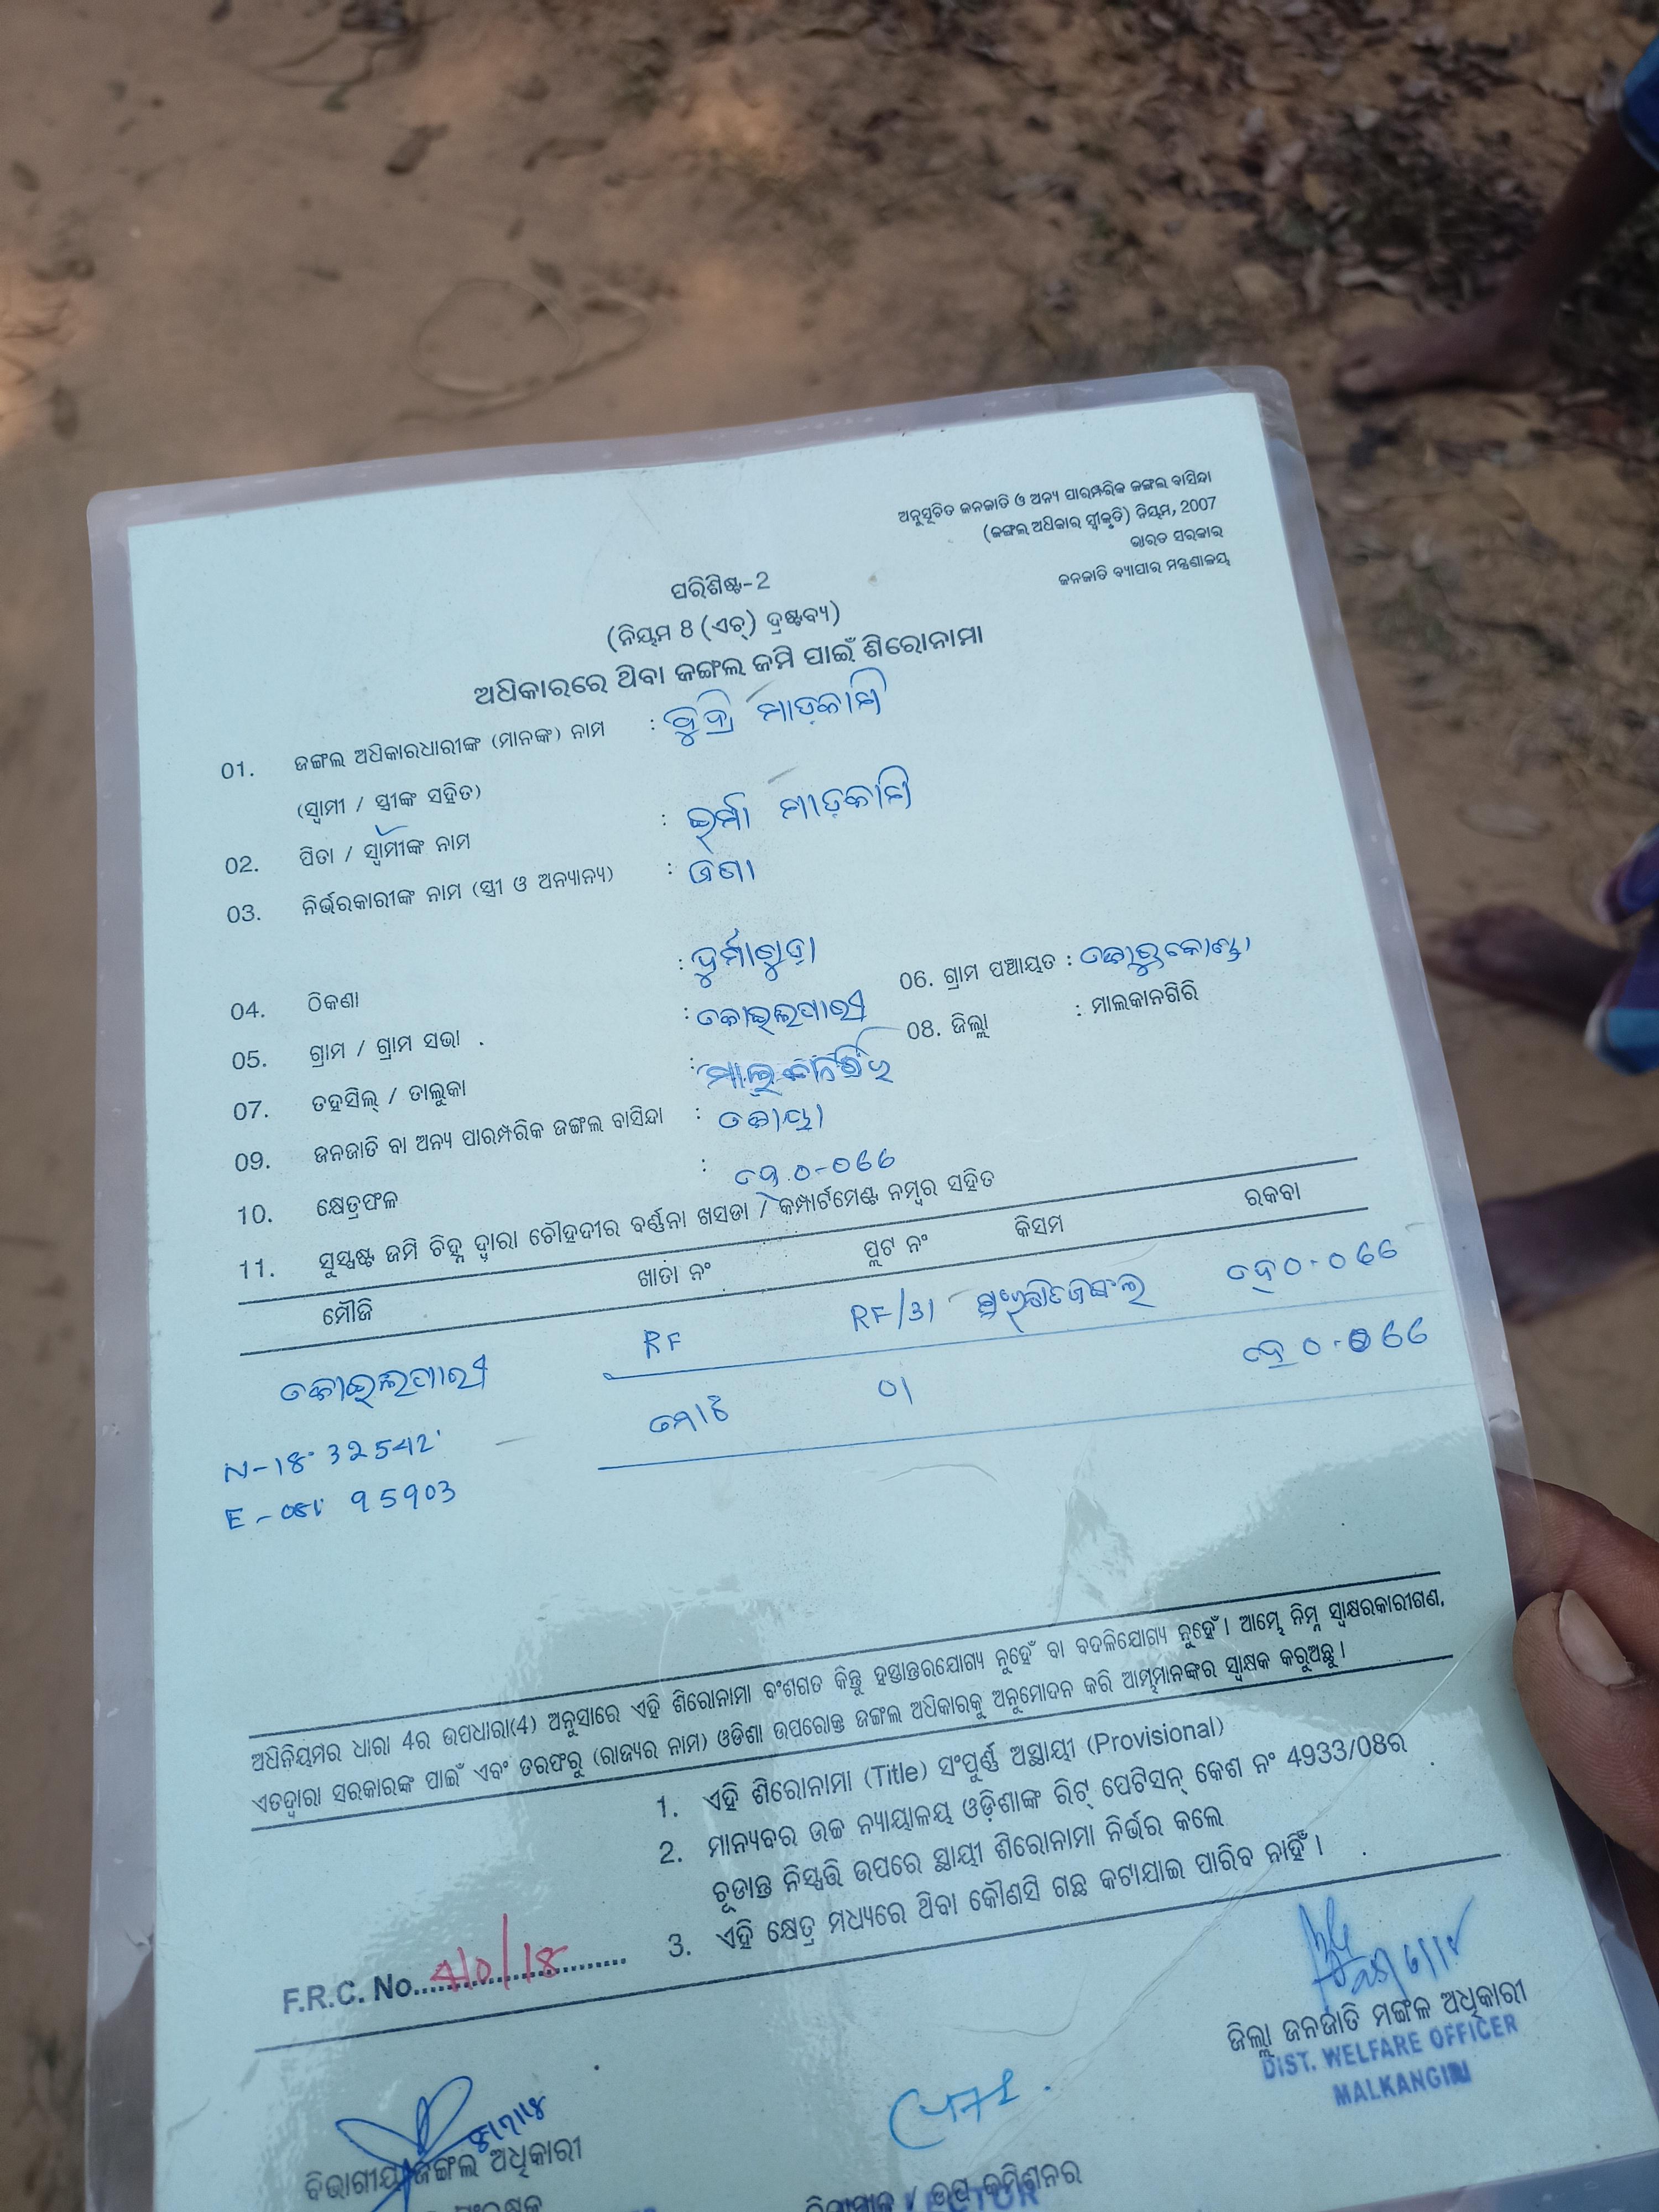 ଅନୁସୂଚିତ ଜନଜାତି ଓ ଅନ୍ୟ ପାରମ୍ପରିକ ଜଙ୍ଗଲ ବାସିନ୍ଦା
(ଜଙ୍ଗଲ ଅଧିକାର ସ୍ୱୀକୃତି) ନିୟମ, 2007
ଭାରତ ସରକାର
ଜନଜାତି ବ୍ୟାପାର ମନ୍ତ୍ରଣାଳୟ
ପରିଶିଷ୍ଟ-2
(ନିୟମ 8 (ଏଚ୍) ଦ୍ରଷ୍ଟବ୍ୟ)
ଅଧିକାରରେ ଥିବା ଜଙ୍ଗଲ ଜମି ପାଇଁ ଶିରୋନାମା
01. ଜଙ୍ଗଲ ଅଧିକାରଧାରୀଙ୍କ (ମାନଙ୍କ) ନାମ : ମାଡ଼କାମି
(ସ୍ୱାମୀ / ସ୍ତ୍ରୀଙ୍କ ସହିତ)
02. ପିତା / ସ୍ୱାମୀଙ୍କ ନାମ : ଇର୍ମା ମାଡ଼କାମି
03. ନିର୍ଭରକାରୀଙ୍କ ନାମ (ସ୍ତ୍ରୀ ଓ ଅନ୍ୟାନ୍ୟ) :
04. ଠିକଣା :
05. ଗ୍ରାମ / ଗ୍ରାମ ସଭା : କୋଇଲପାରୀ 06. ଗ୍ରାମ ପଞ୍ଚାୟତ : କୋରୁକୋଣ୍ଡା
07. ତହସିଲ୍ / ତାଲୁକା : ମାଲକାନଗିରି 08. ଜିଲ୍ଲା : ମାଲକାନଗିରି
09. ଜନଜାତି ବା ଅନ୍ୟ ପାରମ୍ପରିକ ଜଙ୍ଗଲ ବାସିନ୍ଦା : କୋୟା
10. କ୍ଷେତ୍ରଫଳ : ହେ ୦-୦୬୬
11. ସୁସ୍ପଷ୍ଟ ଜମି ଚିହ୍ନ ଦ୍ୱାରା ଚୌହଦୀର ବର୍ଣ୍ଣନା ଖସଡା / କମ୍ପାର୍ଟମେଣ୍ଟ ନମ୍ବର ସହିତ
ମୌଜି ଖାତା ନଂ ପ୍ଲଟ ନଂ କିସମ ରକବା
କୋଇଲପାରୀ RF RF/31 ହେ ୦-୦୬୬
ମୋଟ ୦୧ ହେ ୦-୦୬୬
N-18° 32542'
E-081°
ଅଧିନିୟମର ଧାରା 4ର ଉପଧାରା(4) ଅନୁସାରେ ଏହି ଶିରୋନାମା ବଂଶଗତ କିନ୍ତୁ ହସ୍ତାନ୍ତରଯୋଗ୍ୟ ନୁହେଁ ବା ବଦଳିଯୋଗ୍ୟ ନୁହେଁ । ଆମ୍ଭେ ନିମ୍ନ ସ୍ୱାକ୍ଷରକାରୀଗଣ,
ଏତଦ୍ୱାରା ସରକାରଙ୍କ ପାଇଁ ଏବଂ ତରଫରୁ (ରାଜ୍ୟର ନାମ) ଓଡିଶା ଉପରୋକ୍ତ ଜଙ୍ଗଲ ଅଧିକାରକୁ ଅନୁମୋଦନ କରି ଆମ୍ଭମାନଙ୍କର ସ୍ୱାକ୍ଷକ କରୁଅଛୁ ।
1. ଏହି ଶିରୋନାମା (Title) ସଂପୂର୍ଣ୍ଣ ଅସ୍ଥାୟୀ (Provisional)
2. ମାନ୍ୟବର ଉଚ୍ଚ ନ୍ୟାୟାଳୟ ଓଡ଼ିଶାଙ୍କ ରିଟ୍ ପେଟିସନ୍ କେଶ ନଂ 4933/08ର
ଚୂଡାନ୍ତ ନିସ୍ପତ୍ତି ଉପରେ ସ୍ଥାୟୀ ଶିରୋନାମା ନିର୍ଭର କଲେ
3. ଏହି କ୍ଷେତ୍ର ମଧ୍ୟରେ ଥିବା କୌଣସି ଗଛ କଟାଯାଇ ପାରିବ ନାହିଁ ।
F.R.C. No.
ଜିଲ୍ଲା ଜନଜାତି ମଙ୍ଗଳ ଅଧିକାରୀ
DIST. WELFARE OFFICER
MALKANGIRI
ବିଭାଗୀୟ ଜଙ୍ଗଲ ଅଧିକାରୀ
ଉପ କମିଶନର